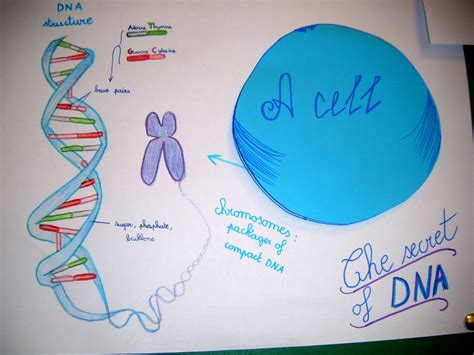 DNA
structure
Adenine Thymine
Guanine Cytosine
base pairs
sugar, phosphate,
backbone
A cell
chromosomes:
packages of
compact DNA
The secret
of DNA